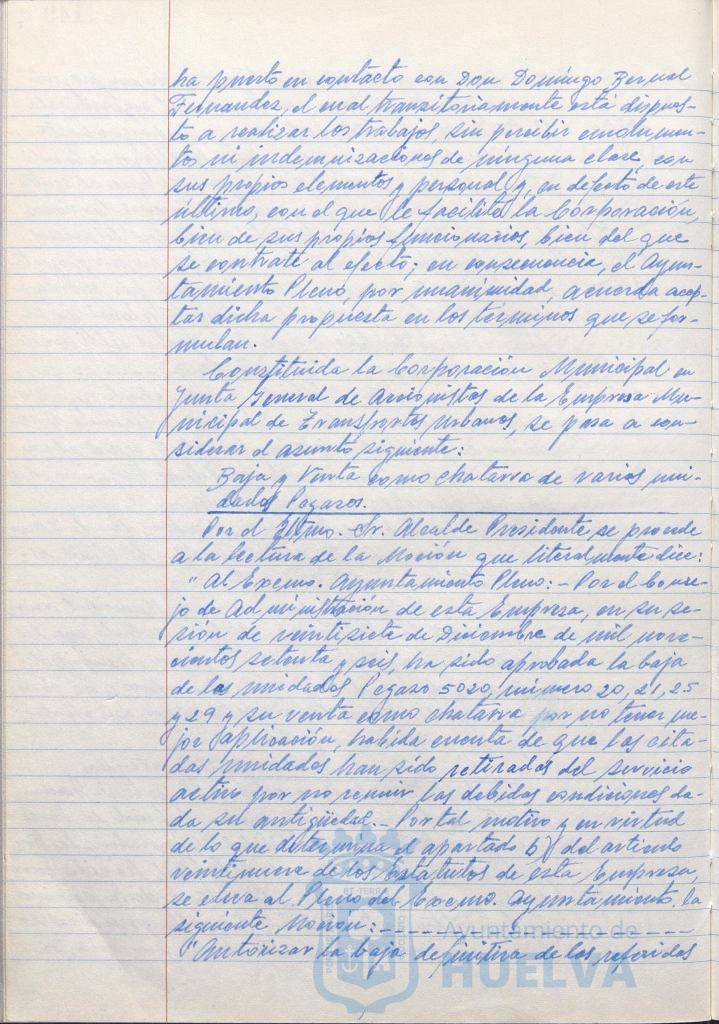 ha puesto en contacto con Don Domingo Bernal
Fernandez, el cual transitoriamente está dispues-
to a realizar los trabajos, sin percibir emolumen-
tos ni indemnizaciones de ninguna clase, con
sus propios elementos y personal y, en defecto de este
último, con el que le facilite la Corporación,
bien de sus propios funcionarios, bien del que
se contrate al efecto; en consecuencia, el Ayun-
tamiento Pleno, por unanimidad, acuerda acep-
tar dicha propuesta en los términos que se for-
mulan.
Constituida la Corporación Municipal en
Junta General de Accionistas de la Empresa Mu-
nicipal de Transportes Urbanos, se pasa a con-
siderar el asunto siguiente:
Baja y Venta como chatarra de varias uni-
dades Pegasos.
Por el Iltmo. Sr. Alcalde Presidente se procede
a la lectura de la Moción que literalmente dice:
"Al Excmo. Ayuntamiento Pleno: - Por el Conse-
jo de Administración de esta Empresa, en su se-
sión de veintisiete de Diciembre de mil nove-
cientos setenta y seis, ha sido aprobada la baja
de las unidades Pegaso 5020, número 20, 21, 25
y 29 y su venta como chatarra por no tener me-
jor aplicación, habida cuenta de que las cita-
das unidades han sido retiradas del servicio
activo por no reunir las debidas condiciones da-
da su antigüedad. - Por tal motivo y en virtud
de lo que determina el apartado 6) del artículo
veintinueve de los Estatutos de esta Empresa,
se eleva al Pleno del Excmo. Ayuntamiento, la
siguiente Moción: - - - - - - - - - -
"Autorizar la baja definitiva de los referidos
Ayuntamiento de
HUELVA